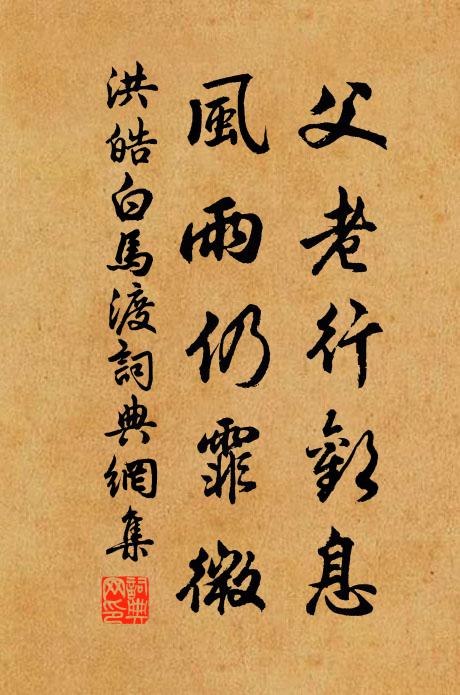 父老行歎息
風雨仍霏微
洪皓白馬渡詞典網集
詞典網印